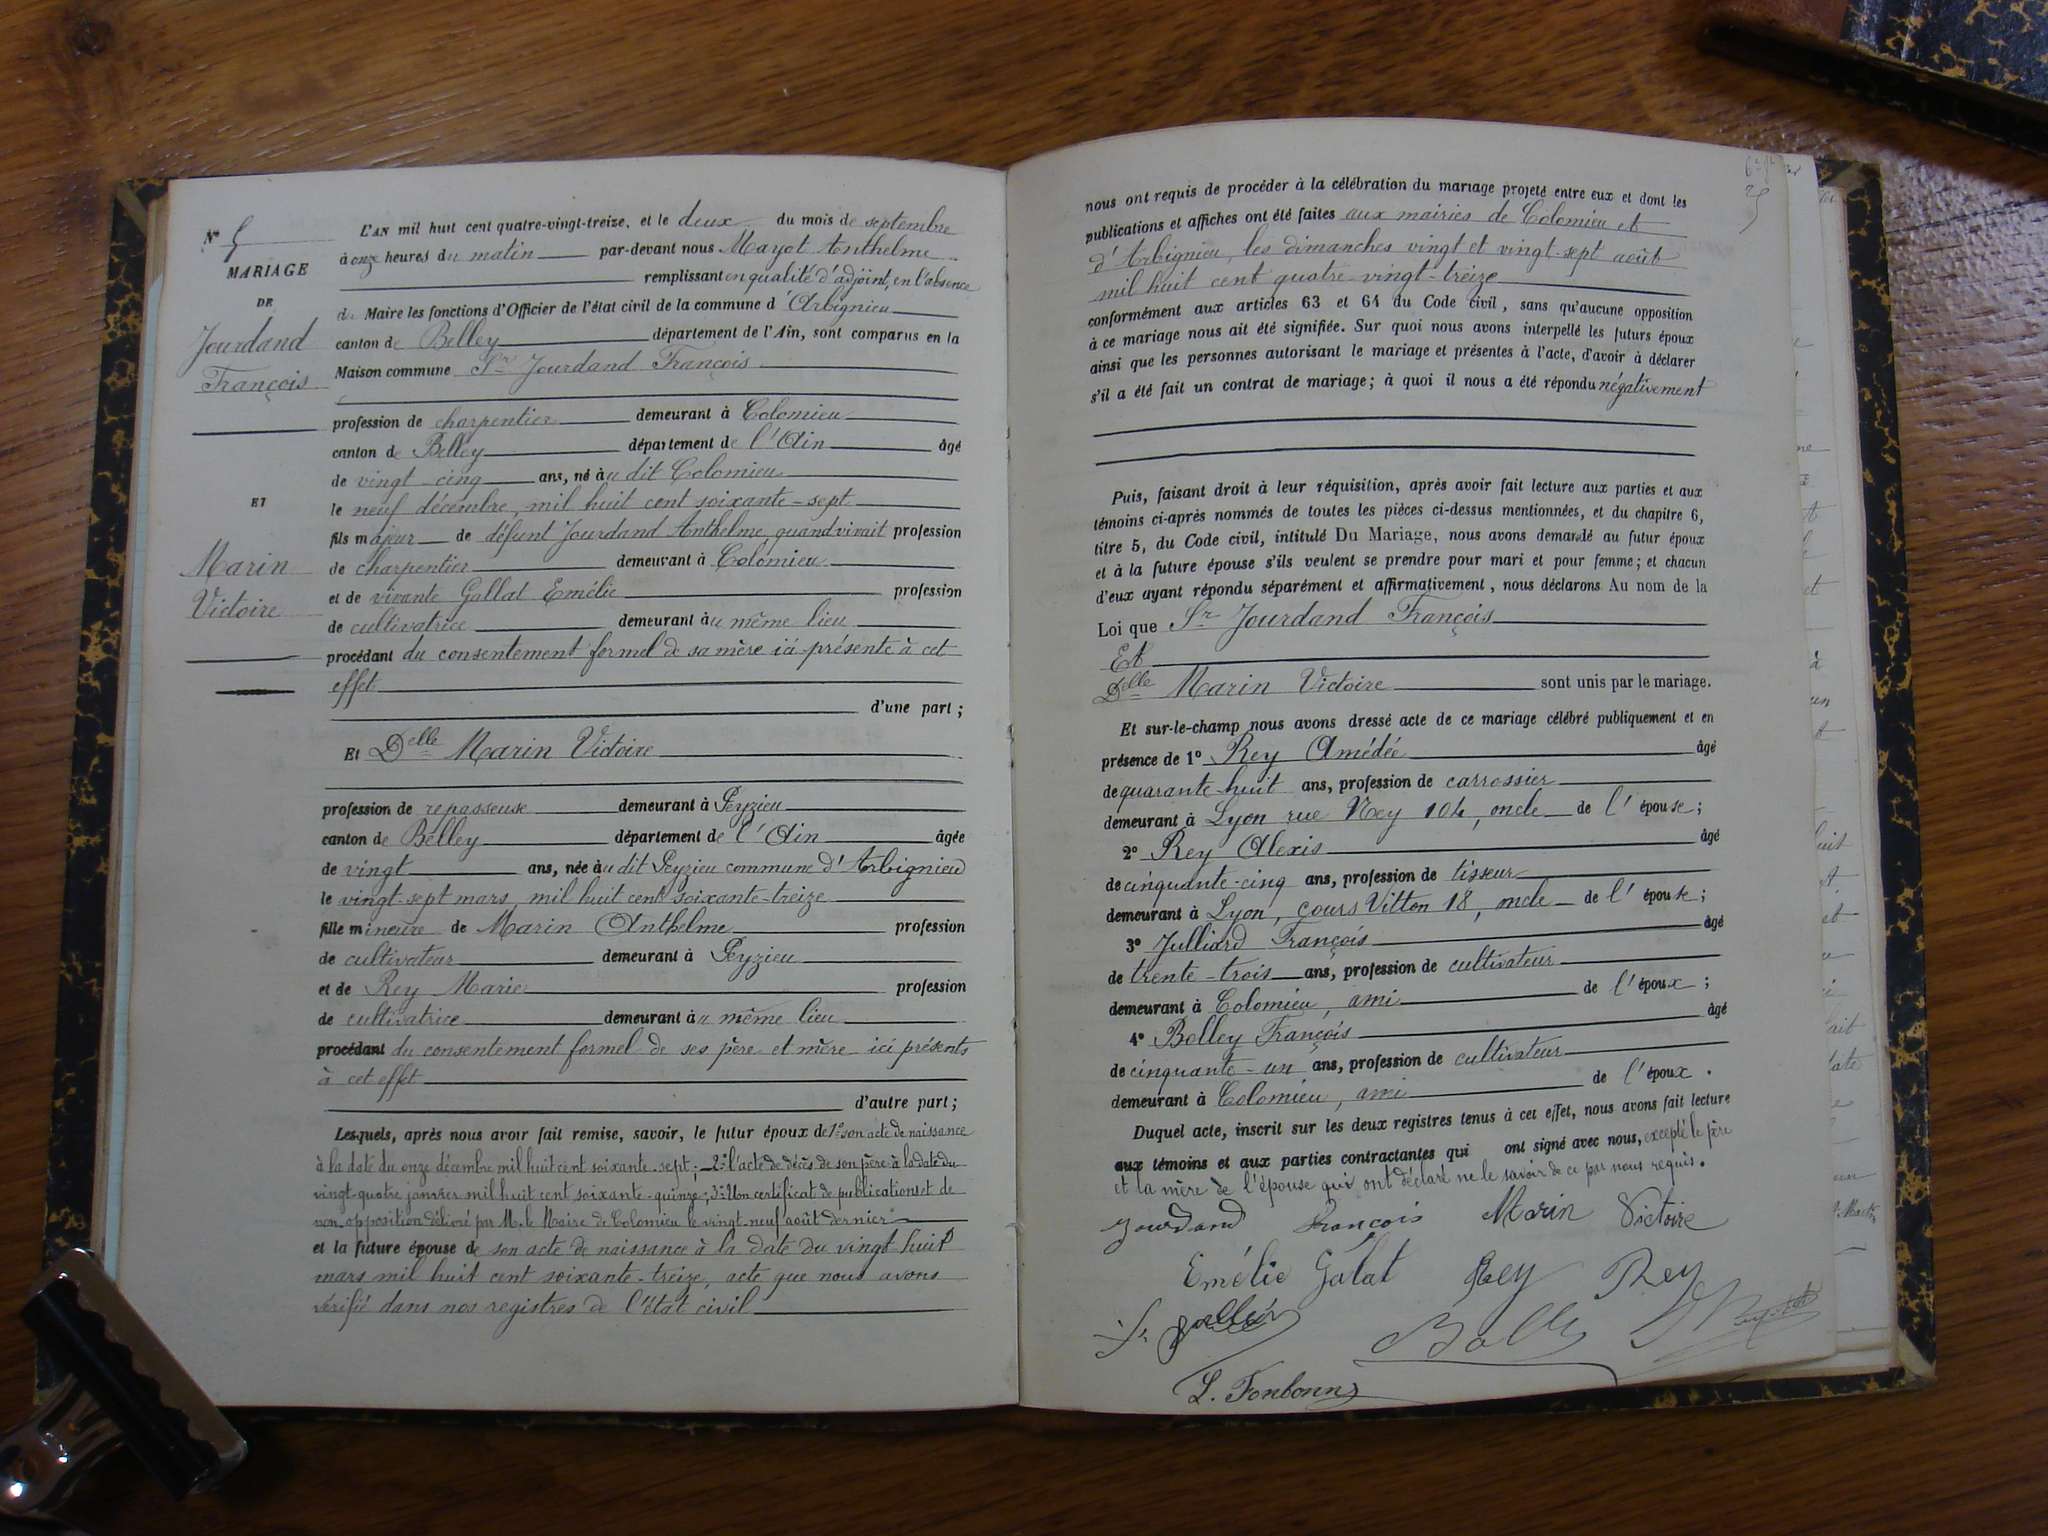 N° 5
MARIAGE
DE
Jourdand
François
ET
Marin
Victoire
L'AN mil huit cent quatre-vingt-treize, et le deux du mois de septembre
à onze heures du matin par-devant nous Mayot Anthelme
remplissant en qualité d'adjoint, en l'absence
du Maire les fonctions d'Officier de l'état civil de la commune d'Arbignieu
canton de Belley département de l'Ain, sont comparus en la
Maison commune Sr Jourdand François
profession de charpentier demeurant à Colomieu
canton de Belley département de l'Ain âgé
de vingt-cinq ans, né au dit Colomieu
le neuf décembre, mil huit cent soixante-sept
fils majeur de défunt Jourdand Anthelme, quand vivait profession
de charpentier demeurant à Colomieu
et de vivante Gallat Emélie profession
de cultivatrice demeurant au même lieu
procédant du consentement formel de sa mère ici présente à cet
effet
d'une part;
Et Delle Marin Victoire
profession de repasseuse demeurant à Peyzieu
canton de Belley département de l'Ain âgée
de vingt ans, née au dit Peyzieu commune d'Arbignieu
le vingt-sept mars, mil huit cent soixante-treize
fille mineure de Marin Anthelme profession
de cultivateur demeurant à Peyzieu
et de Rey Marie profession
de cultivatrice demeurant au même lieu
procédant du consentement formel de ses père et mère ici présents
à cet effet
d'autre part;
Lesquels, après nous avoir fait remise, savoir, le futur époux de 1° son acte de naissance
à la date du onze décembre mil huit cent soixante-sept; 2° l'acte de décès de son père à la date du
vingt-quatre janvier mil huit cent soixante-quinze; 3° Un certificat de publications et de
non-opposition délivré par M. le Maire de Colomieu le vingt-neuf août dernier
et la future épouse de son acte de naissance à la date du vingt huit
mars mil huit cent soixante-treize, acte que nous avons
vérifié dans nos registres de l'état civil
nous ont requis de procéder à la célébration du mariage projeté entre eux et dont les
publications et affiches ont été faites aux mairies de Colomieu et
d'Arbignieu, les dimanches vingt et vingt-sept août
mil huit cent quatre-vingt-treize
conformément aux articles 63 et 64 du Code civil, sans qu'aucune opposition
à ce mariage nous ait été signifiée. Sur quoi nous avons interpellé les futurs époux
ainsi que les personnes autorisant le mariage et présentes à l'acte, d'avoir à déclarer
s'il a été fait un contrat de mariage; à quoi il nous a été répondu négativement
Puis, faisant droit à leur réquisition, après avoir fait lecture aux parties et aux
témoins ci-après nommés de toutes les pièces ci-dessus mentionnées, et du chapitre 6,
titre 5, du Code civil, intitulé Du Mariage, nous avons demandé au futur époux
et à la future épouse s'ils veulent se prendre pour mari et pour femme; et chacun
d'eux ayant répondu séparément et affirmativement, nous déclarons Au nom de la
Loi que Sr Jourdand François
Et
Delle Marin Victoire sont unis par le mariage.
Et sur-le-champ nous avons dressé acte de ce mariage célébré publiquement et en
présence de 1° Rey Amédée âgé
de quarante huit ans, profession de carrossier
demeurant à Lyon rue Ney 104, oncle de l'épouse;
2° Rey Alexis âgé
de cinquante-cinq ans, profession de tisseur
demeurant à Lyon, cours Vitton 18, oncle de l'épouse;
3° Julliard François âgé
de trente-trois ans, profession de cultivateur
demeurant à Colomieu, ami de l'époux;
4° Bolley François âgé
de cinquante-un ans, profession de cultivateur
demeurant à Colomieu, ami de l'époux.
Duquel acte, inscrit sur les deux registres tenus à cet effet, nous avons fait lecture
aux témoins et aux parties contractantes qui ont signé avec nous, excepté le père
et la mère de l'épouse qui ont déclaré ne le savoir de ce par nous requis.
Jourdand François Marin Victoire
Emélie Galat Rey Rey
L. Fonbonne